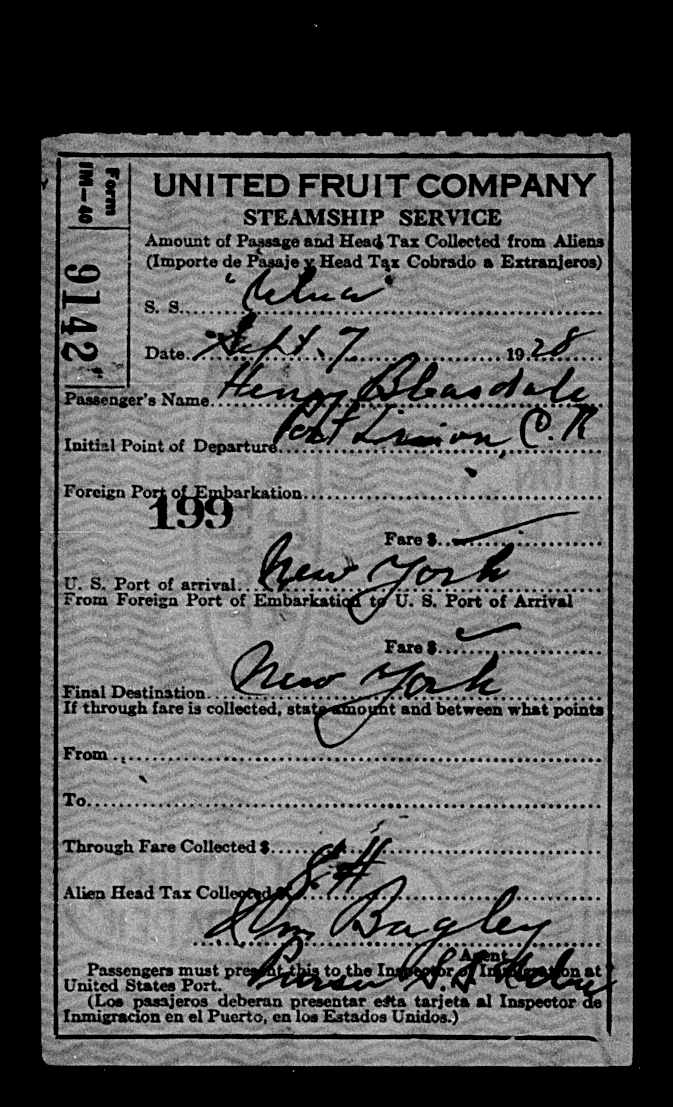 Form
IM—40
9142
UNITED FRUIT COMPANY
STEAMSHIP SERVICE
Amount of Passage and Head Tax Collected from Aliens
(Importe de Pasaje y Head Tax Cobrado a Extranjeros)
S. S.
Date Sept 7 1928
Passenger's Name Henry Bleasdale
Initial Point of Departure Port Limon, C. R
Foreign Port of Embarkation
199
Fare $
U. S. Port of arrival New York
From Foreign Port of Embarkation to U. S. Port of Arrival
Fare $
Final Destination New York
If through fare is collected, state amount and between what points
From
To
Through Fare Collected $
Alien Head Tax Collected $ 8
Bagley
Agent
Purser S.S.
Passengers must present this to the Inspector of Immigration at
United States Port.
(Los pasajeros deberan presentar esta tarjeta al Inspector de
Inmigracion en el Puerto, en los Estados Unidos.)